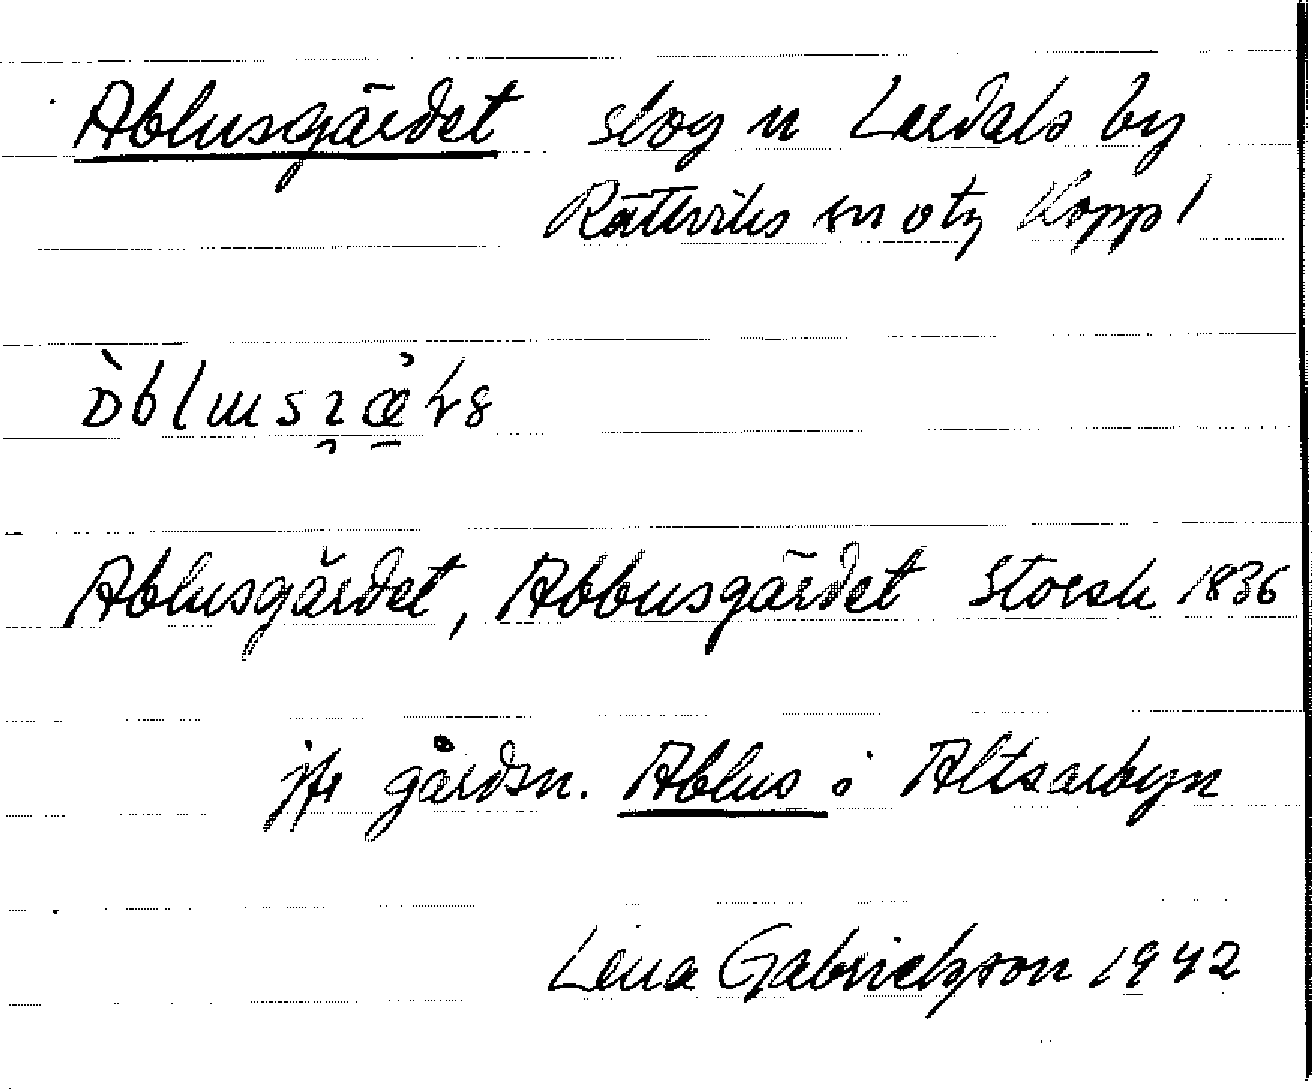 Ablusgärdet slog n Lerdals by
Rättviks sn o tg Kopp l
Ablusgärdet, Abbusgärdet Storsk 1836
jfr gårdsn. Ablus i Altsarbyn
Lena Gabrielsson 1942